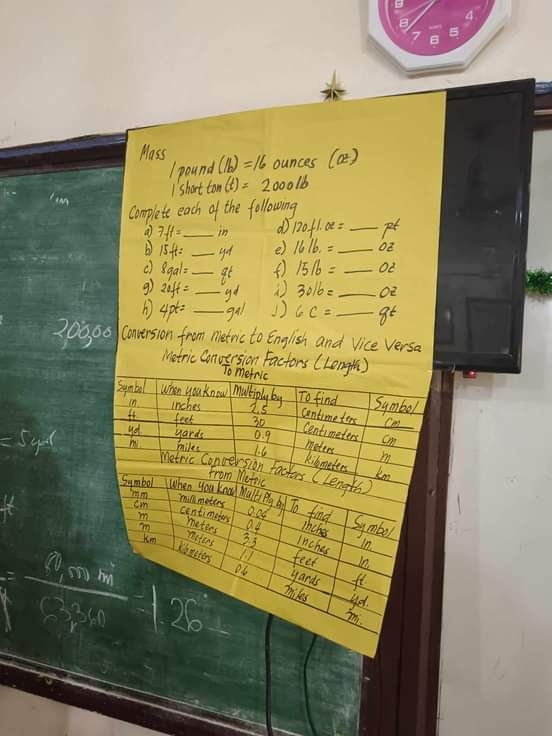 9
8
7
6
5
Mass
1 pound (lb) = 16 ounces (oz)
1 short ton (t) = 2000 lb
Complete each of the following
a) 7ft = ___ in
b) 15ft = ___ yd
c) 8gal = ___ qt
g) 20ft = ___ yd
h) 4pt = ___ gal
d) 120fl.oz = ___ pt
e) 16lb. = ___ oz
f) 15lb = ___ oz
i) 30lb = ___ oz
J) 6 C = ___ qt
Conversion from Metric to English and Vice Versa
Metric Conversion Factors (Length)
To Metric
Symbol When you know Multiply by To find Symbol
in inches 2.5 Centimeters cm
ft. feet 30 Centimeters cm
yd yards 0.9 meters m
mi miles 1.6 kilometers km
Metric Conversion Factors (Length)
From Metric
Symbol When you know Multiply by To find Symbol
mm millimeters 0.04 inches in.
cm centimeters 0.4 inches in.
m meters 3.3 feet ft.
m meters 1.1 yards yd.
km kilometers 0.6 miles mi.
= 5 yd
ft
= 80,000 in
63,360
= 1.26